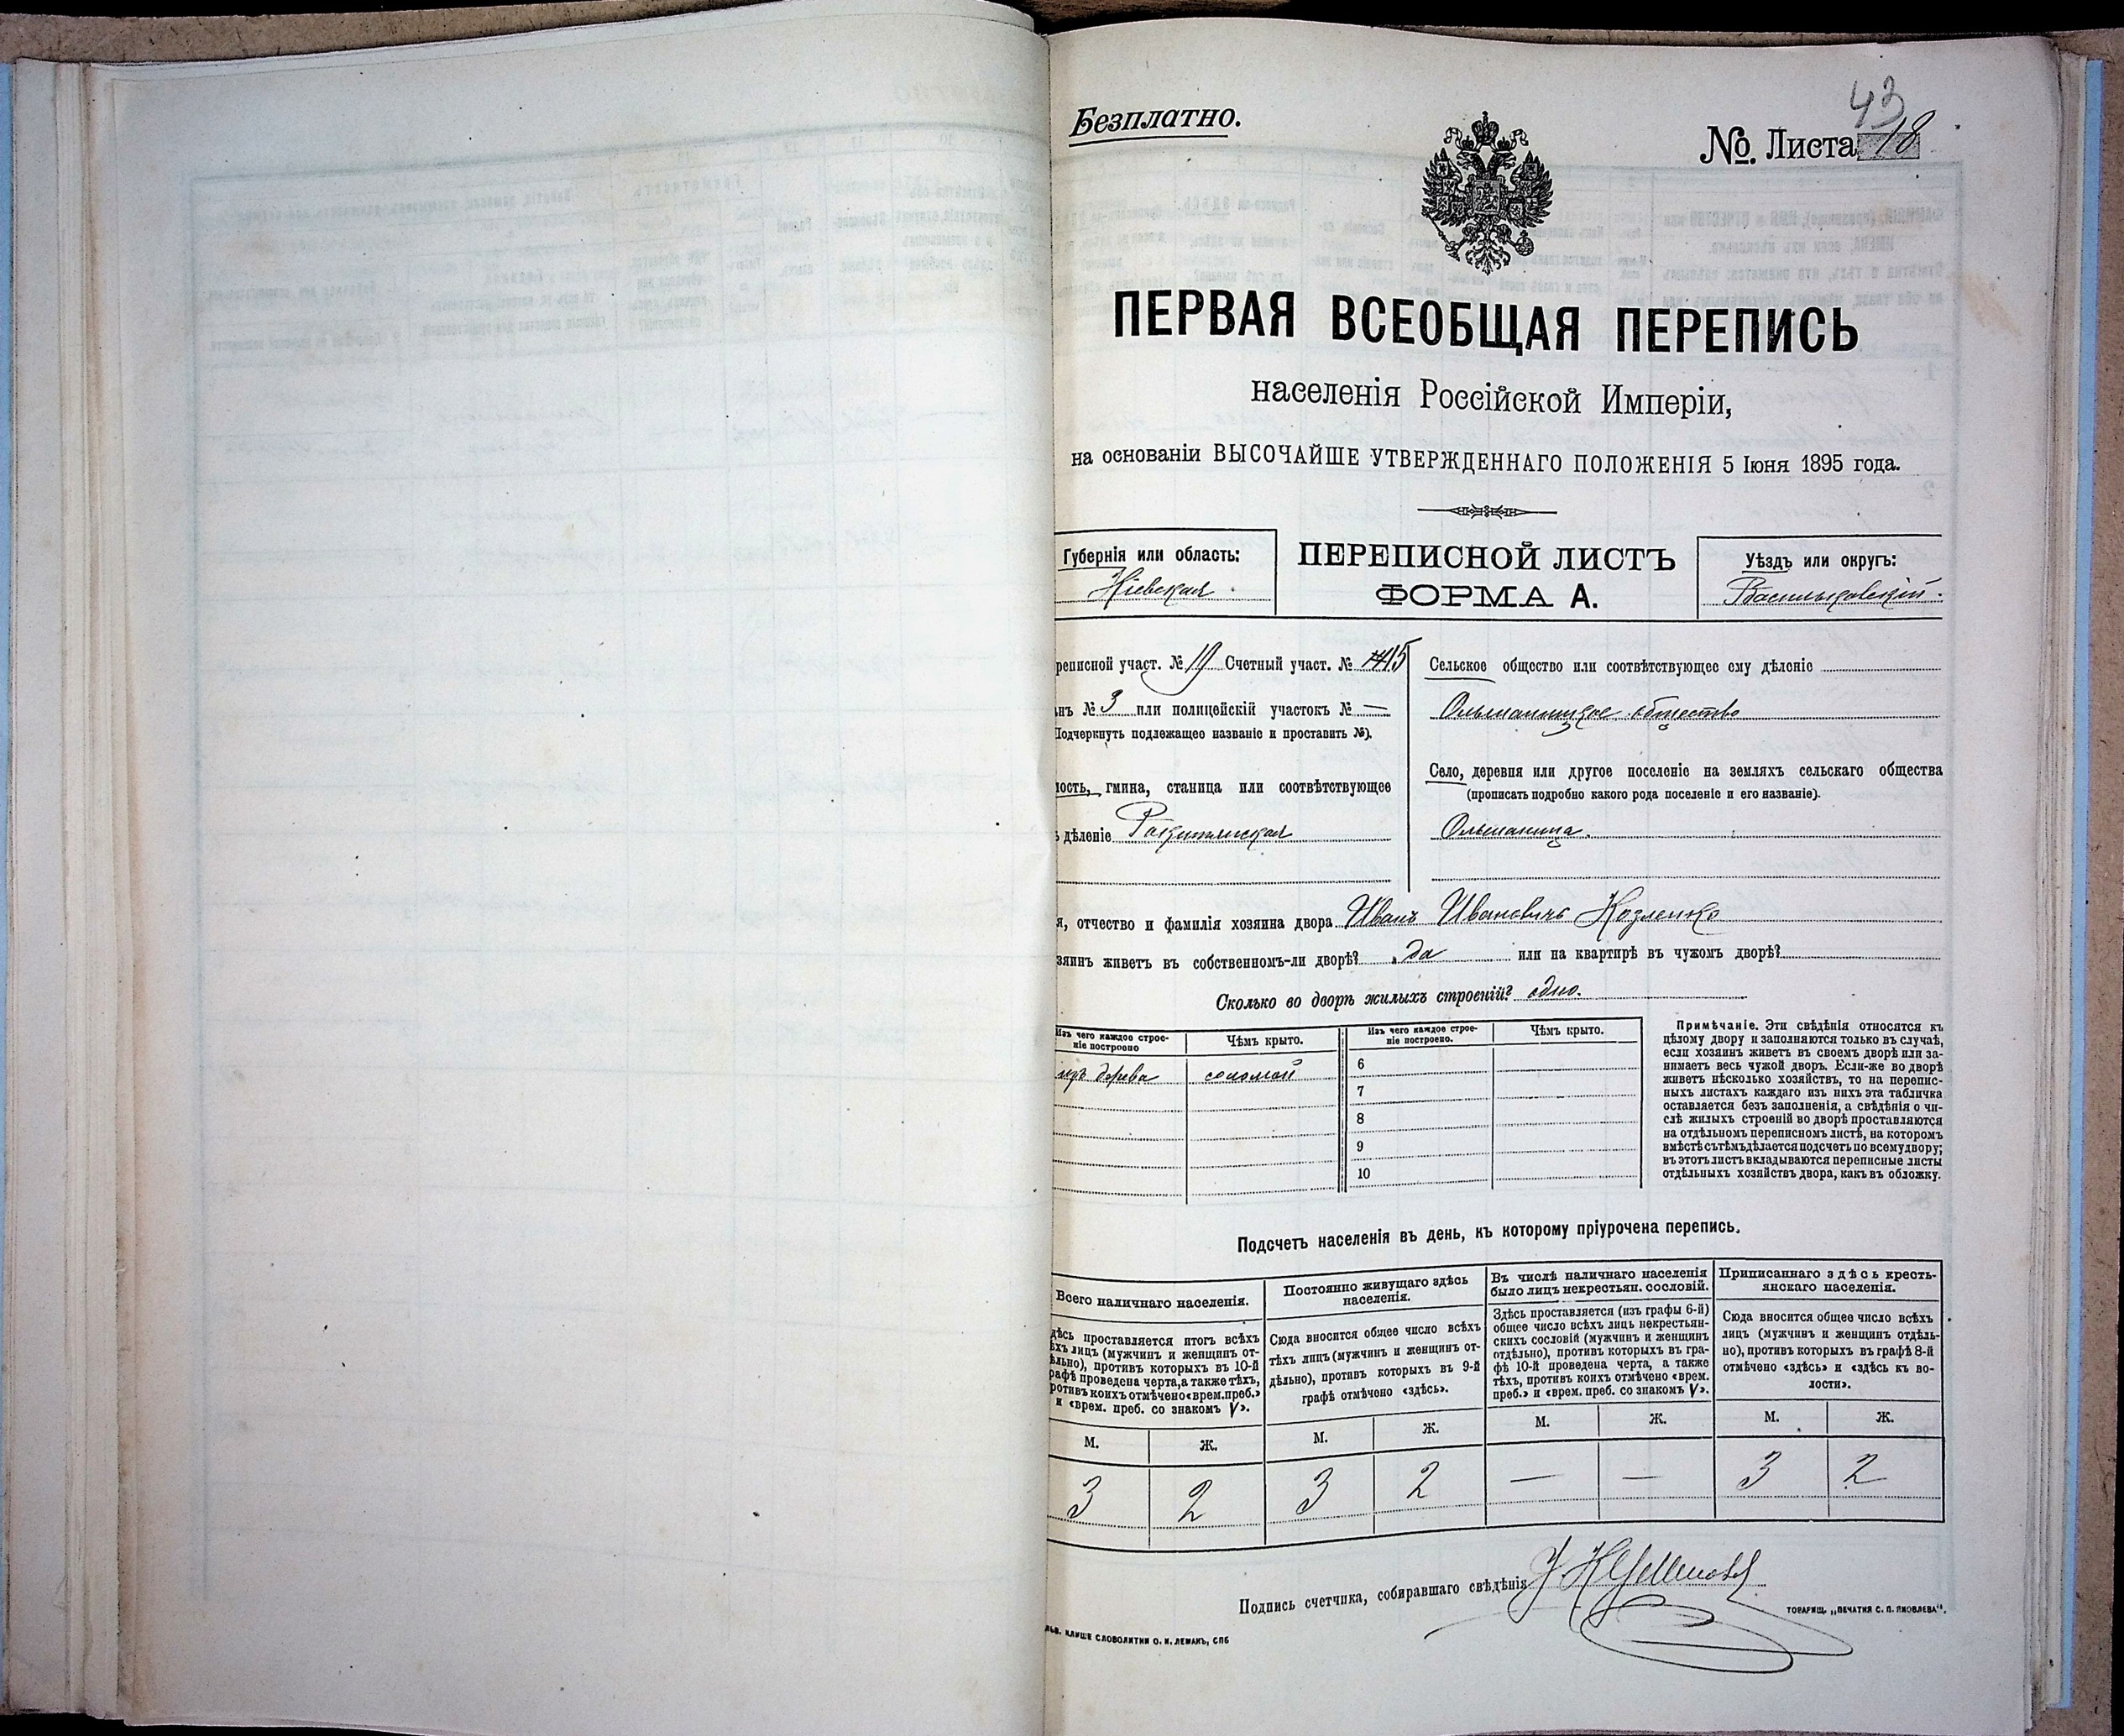 Безплатно.
43
№. Листа 18
ПЕРВАЯ ВСЕОБЩАЯ ПЕРЕПИСЬ
населенія Россійской Имперіи,
на основаніи ВЫСОЧАЙШЕ УТВЕРЖДЕННАГО ПОЛОЖЕНІЯ 5 Іюня 1895 года.
Губернія или область:
Кіевская.
ПЕРЕПИСНОЙ ЛИСТЪ
ФОРМА А.
Уѣздъ или округъ:
Васильковскій.
реписной участ. № 19 Счетный участ. № 15
нъ № 3 или полицейскій участокъ № —
Подчеркнуть подлежащее названіе и проставить №).
ость, гмина, станица или соотвѣтствующее
ъ дѣленіе Ракитянская
Сельское общество или соотвѣтствующее ему дѣленіе
Ольшаницкое общество
Село, деревня или другое поселеніе на земляхъ сельскаго общества
(прописать подробно какого рода поселеніе и его названіе).
Ольшаница.
я, отчество и фамилія хозяина двора Иванъ Ивановичъ Козленко
зяинъ живетъ въ собственномъ-ли дворѣ? да или на квартирѣ въ чужомъ дворѣ?
Сколько во дворѣ жилыхъ строеній? одно.
Изъ чего каждое строе-
ніе построено
Чѣмъ крыто.
изъ дерева
соломой
Изъ чего каждое строе-
ніе построено.
Чѣмъ крыто.
6
7
8
9
10
Примѣчаніе. Эти свѣдѣнія относятся къ
цѣлому двору и заполняются только въ случаѣ,
если хозяинъ живетъ въ своемъ дворѣ или за-
нимаетъ весь чужой дворъ. Если-же во дворѣ
живетъ нѣсколько хозяйствъ, то на перепис-
ныхъ листахъ каждаго изъ нихъ эта табличка
оставляется безъ заполненія, а свѣдѣнія о чи-
слѣ жилыхъ строеній во дворѣ проставляются
на отдѣльномъ переписномъ листѣ, на которомъ
вмѣстѣ съ тѣмъ дѣлается подсчетъ по всему двору;
въ этотъ листъ вкладываются переписные листы
отдѣльныхъ хозяйствъ двора, какъ въ обложку.
Подсчетъ населенія въ день, къ которому пріурочена перепись.
Всего наличнаго населенія.
дѣсь проставляется итогъ всѣхъ
ѣхъ лицъ (мужчинъ и женщинъ от-
ѣльно), противъ которыхъ въ 10-й
рафѣ проведена черта, а также тѣхъ,
ротивъ коихъ отмѣчено «врем. преб.»
и «врем. преб. со знакомъ V».
М. Ж.
3 2
Постоянно живущаго здѣсь
населенія.
Сюда вносится общее число всѣхъ
тѣхъ лицъ (мужчинъ и женщинъ от-
дѣльно), противъ которыхъ въ 9-й
графѣ отмѣчено «здѣсь».
М. Ж.
3 2
Въ числѣ наличнаго населенія
было лицъ некрестьян. сословій.
Здѣсь проставляется (изъ графы 6-й)
общее число всѣхъ лицъ некрестьян-
скихъ сословій (мужчинъ и женщинъ
отдѣльно), противъ которыхъ въ гра-
фѣ 10-й проведена черта, а также
тѣхъ, противъ коихъ отмѣчено «врем.
преб.» и «врем. преб. со знакомъ V».
М. Ж.
— —
Приписаннаго здѣсь кресть-
янскаго населенія.
Сюда вносится общее число всѣхъ
лицъ (мужчинъ и женщинъ отдѣль-
но), противъ которыхъ въ графѣ 8-й
отмѣчено «здѣсь» и «здѣсь къ во-
лости».
М. Ж.
3 2
Подпись счетчика, собиравшаго свѣдѣнія
КЛИШЕ СЛОВОЛИТНИ О. И. ЛЕМАНЪ, СПБ
ТОВАРИЩ. „ПЕЧАТНЯ С. П. ЯКОВЛЕВА".